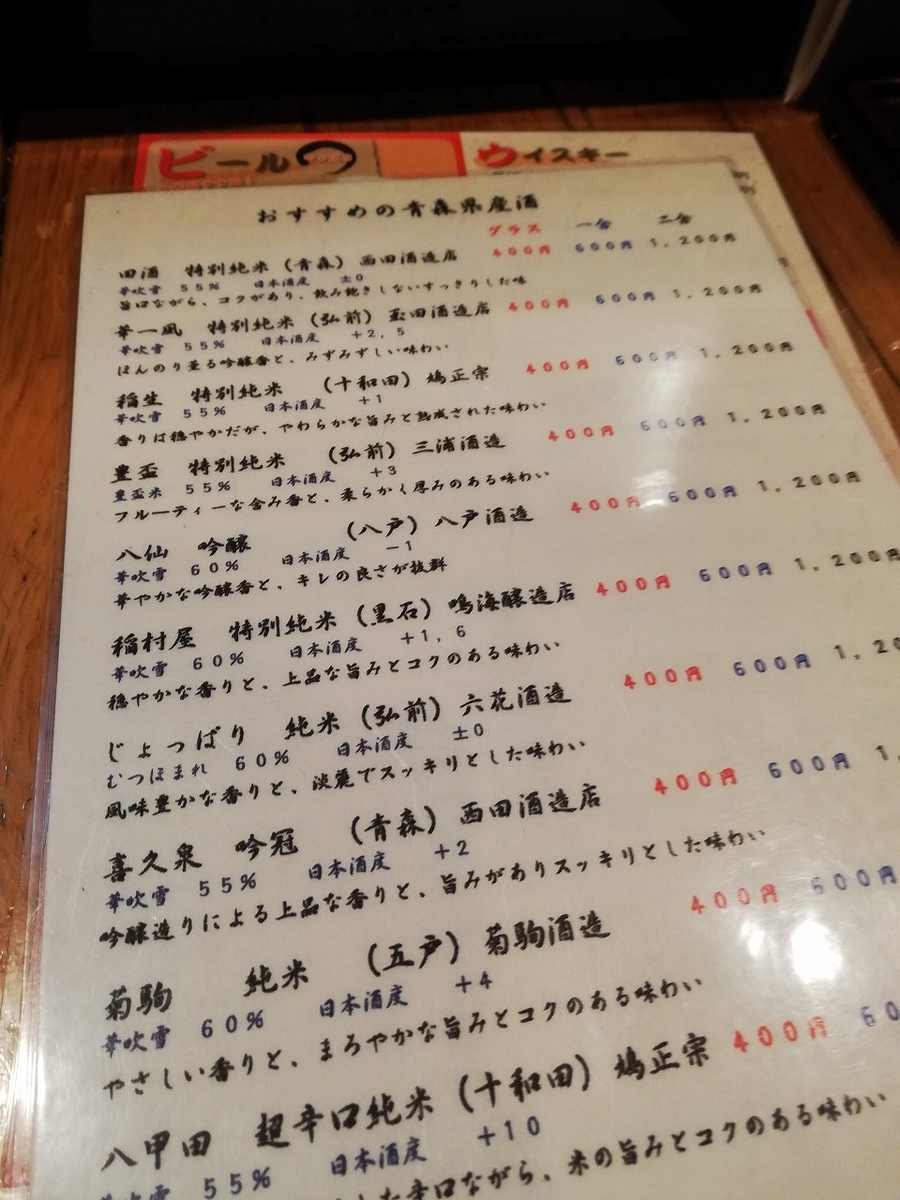 ビール
ウイスキー
おすすめの青森県産酒
グラス 一合 二合
田酒 特別純米 (青森) 西田酒造店 400円 600円 1,200円
華吹雪 55% 日本酒度 ±0
旨口ながら、コクがあり、飲み飽きしないすっきりした味
華一風 特別純米 (弘前) 玉田酒造店 400円 600円 1,200円
華吹雪 55% 日本酒度 +2,5
ほんのり薫る吟醸香と、みずみずしい味わい
稲生 特別純米 (十和田) 鳩正宗 400円 600円 1,200円
華吹雪 55% 日本酒度 +1
香りは穏やかだが、やわらかな旨みと熟成された味わい
豊盃 特別純米 (弘前) 三浦酒造 400円 600円 1,200円
豊盃米 55% 日本酒度 +3
フルーティーな含み香と、柔らかく厚みのある味わい
八仙 吟醸 (八戸) 八戸酒造 400円 600円 1,200円
華吹雪 60% 日本酒度 −1
華やかな吟醸香と、キレの良さが抜群
稲村屋 特別純米 (黒石) 鳴海醸造店 400円 600円 1,200円
華吹雪 60% 日本酒度 +1,6
穏やかな香りと、上品な旨みとコクのある味わい
じょっぱり 純米 (弘前) 六花酒造 400円 600円 1,20
むつほまれ 60% 日本酒度 ±0
風味豊かな香りと、淡麗でスッキリとした味わい
喜久泉 吟冠 (青森) 西田酒造店 400円 600円 1,
華吹雪 55% 日本酒度 +2
吟醸造りによる上品な香りと、旨みがありスッキリとした味わい
菊駒 純米 (五戸) 菊駒酒造 400円 600円
華吹雪 60% 日本酒度 +4
やさしい香りと、まろやかな旨みとコクのある味わい
八甲田 超辛口純米 (十和田) 鳩正宗 400円 60
華吹雪 55% 日本酒度 +10
した辛口ながら、米の旨みとコクのある味わい